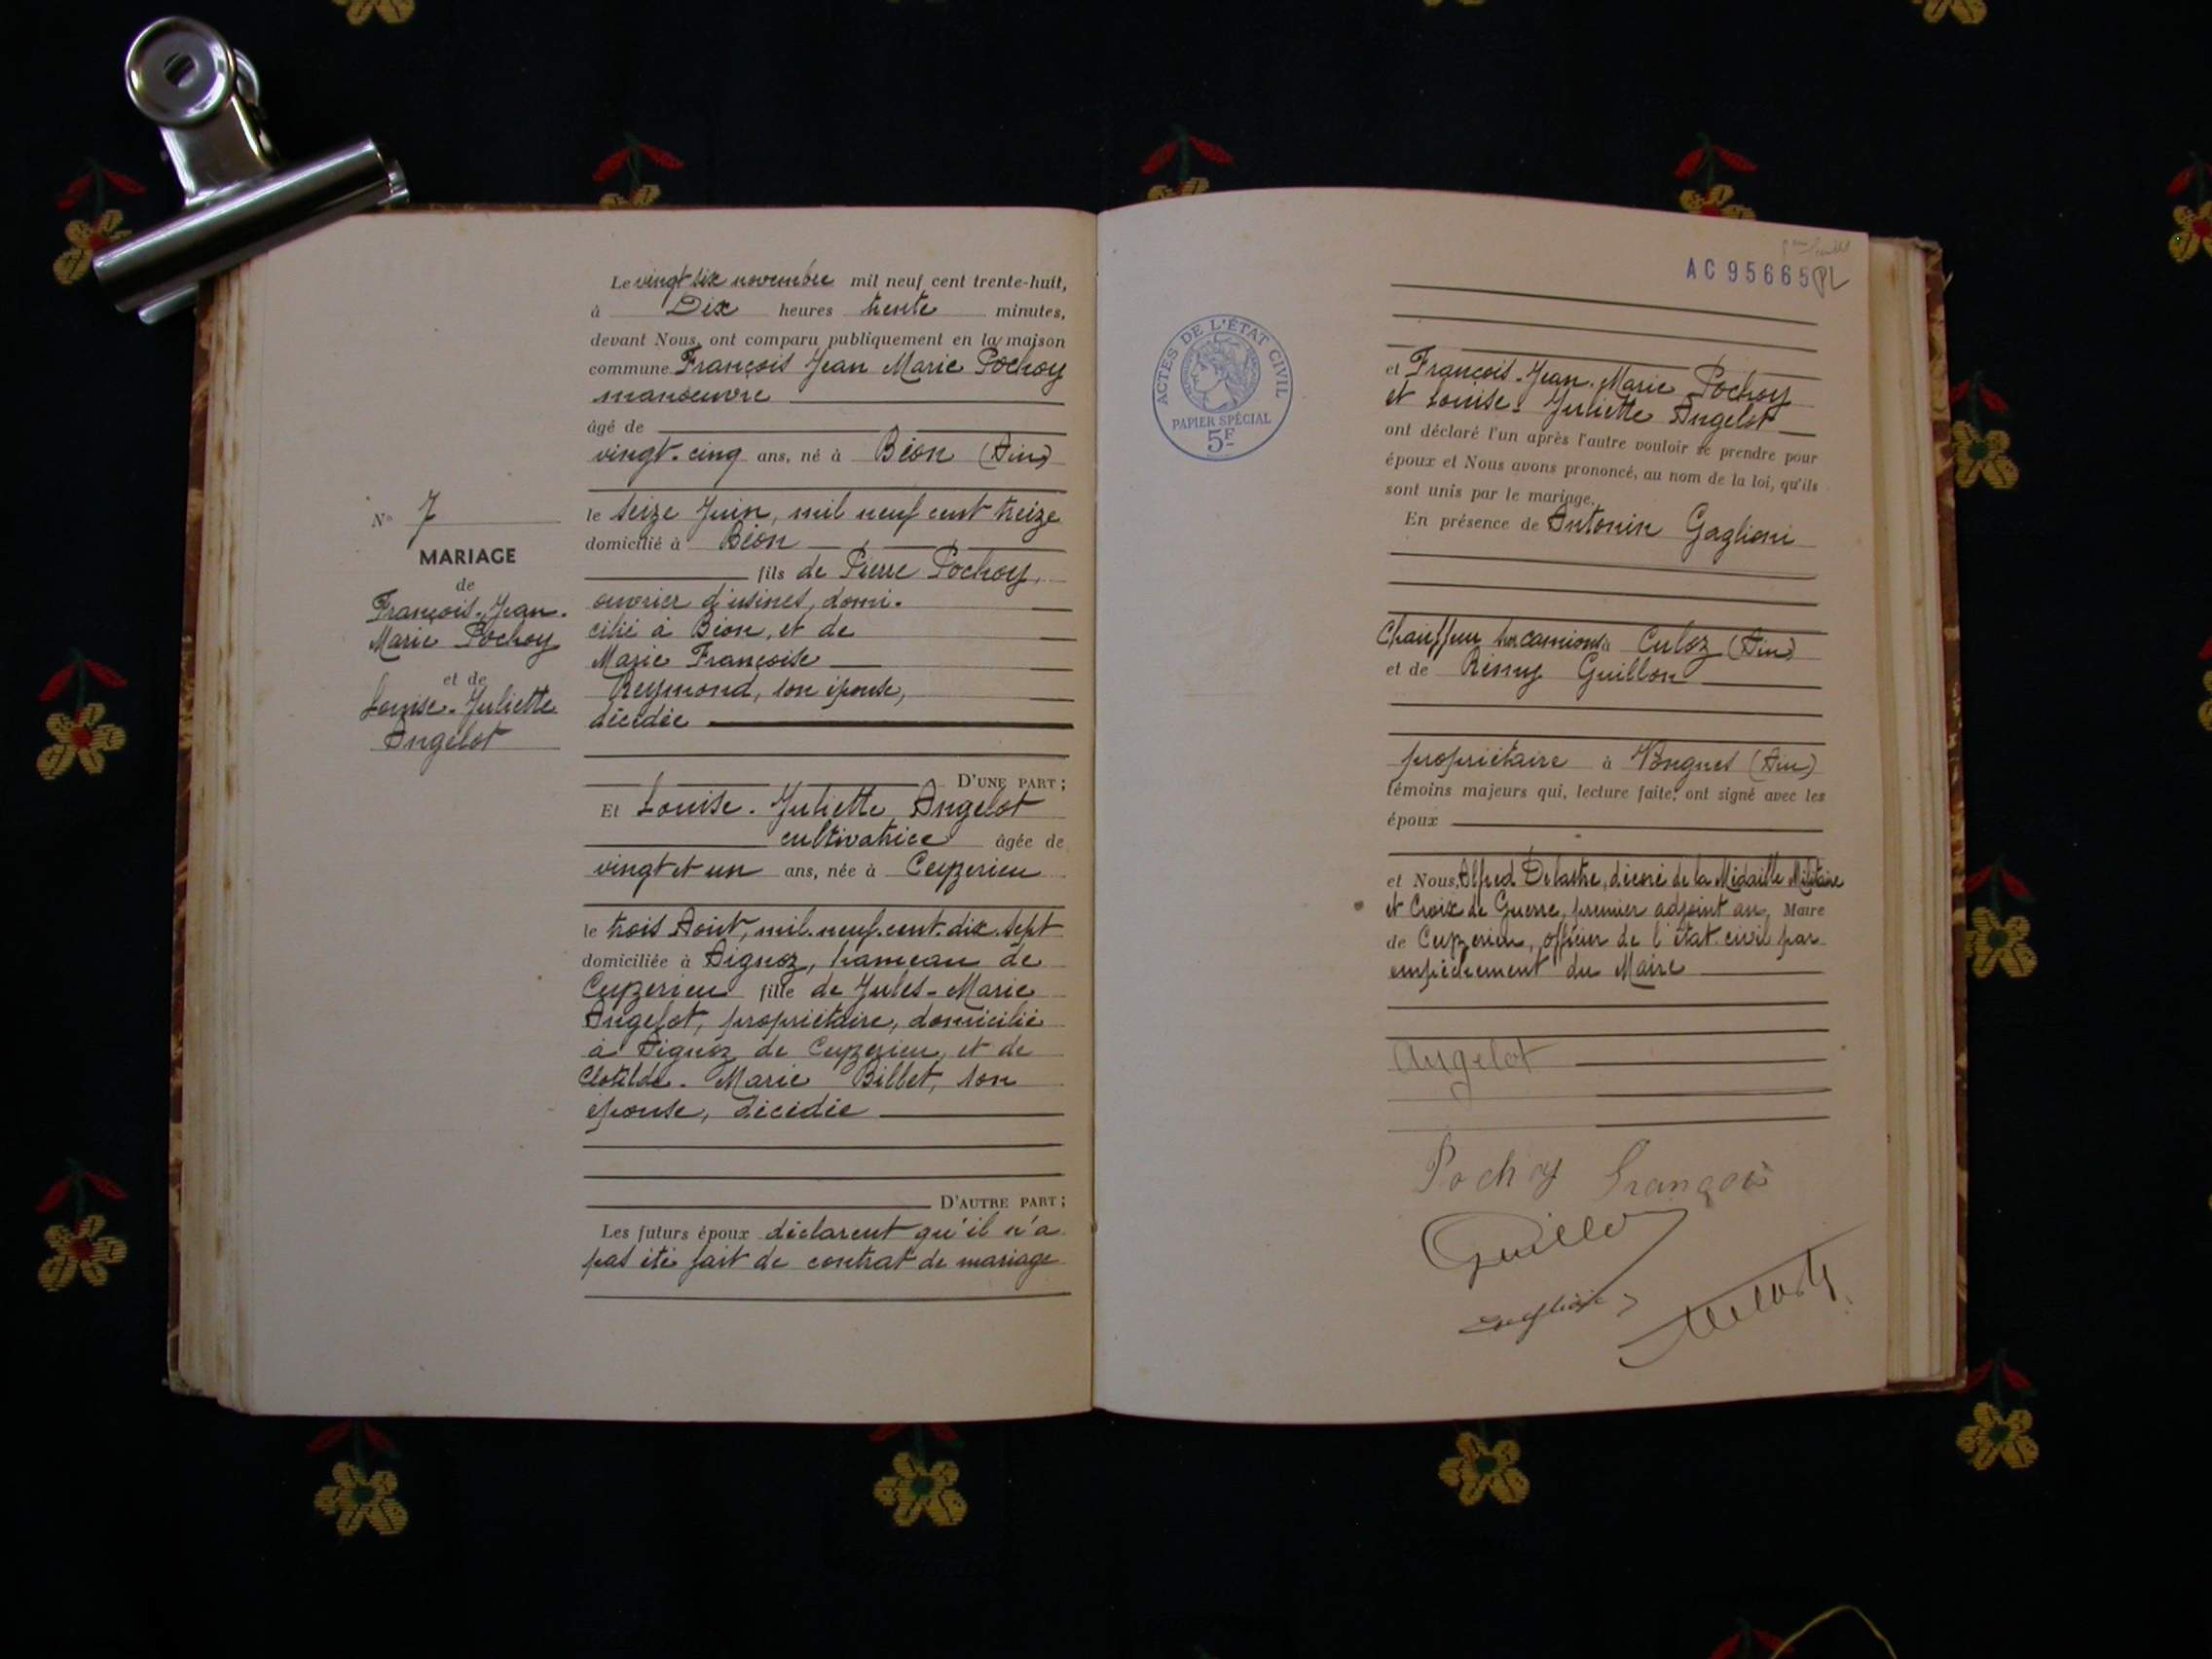 Le vingt six novembre mil neuf cent trente-huit,
à Dix heures trente minutes,
devant Nous, ont comparu publiquement en la maison
commune François Jean Marie Pochoy
manœuvre
âgé de
vingt-cinq ans, né à Béon (Ain)
le seize Juin, mil neuf cent treize
domicilié à Béon
fils de Pierre Pochoy,
ouvrier d'usines, domi-
cilié à Béon, et de
Marie Françoise
Reymond, son épouse,
décédée
D'UNE PART;
Et Louise-Juliette Angelot
cultivatrice âgée de
vingt et un ans, née à Ceyzerieu
le trois Août, mil-neuf-cent-dix-sept
domiciliée à Aignoz, hameau de
Ceyzerieu fille de Jules-Marie
Angelot, propriétaire, domicilié
à Aignoz de Ceyzerieu, et de
Clotilde-Marie Billet, son
épouse, décédée
D'AUTRE PART;
Les futurs époux déclarent qu'il n'a
pas été fait de contrat de mariage
N° 7
MARIAGE
de
François-Jean-
Marie Pochoy
et de
Louise-Juliette
Angelot
AC 95665
ACTES DE L'ÉTAT CIVIL
PAPIER SPÉCIAL
5F
et François-Jean-Marie Pochoy
et Louise-Juliette Angelot
ont déclaré l'un après l'autre vouloir se prendre pour
époux et Nous avons prononcé, au nom de la loi, qu'ils
sont unis par le mariage.
En présence de Antonin Gaglioni
Chauffeur sur camions à Culoz (Ain)
et de Rémy Guillon
propriétaire à Vongnes (Ain)
témoins majeurs qui, lecture faite, ont signé avec les
époux
et Nous, Alfred Delastre, décoré de la Médaille Militaire
et Croix de Guerre, premier adjoint au Maire
de Ceyzerieu, officier de l'état-civil par
empêchement du Maire
Angelot
Pochoy François